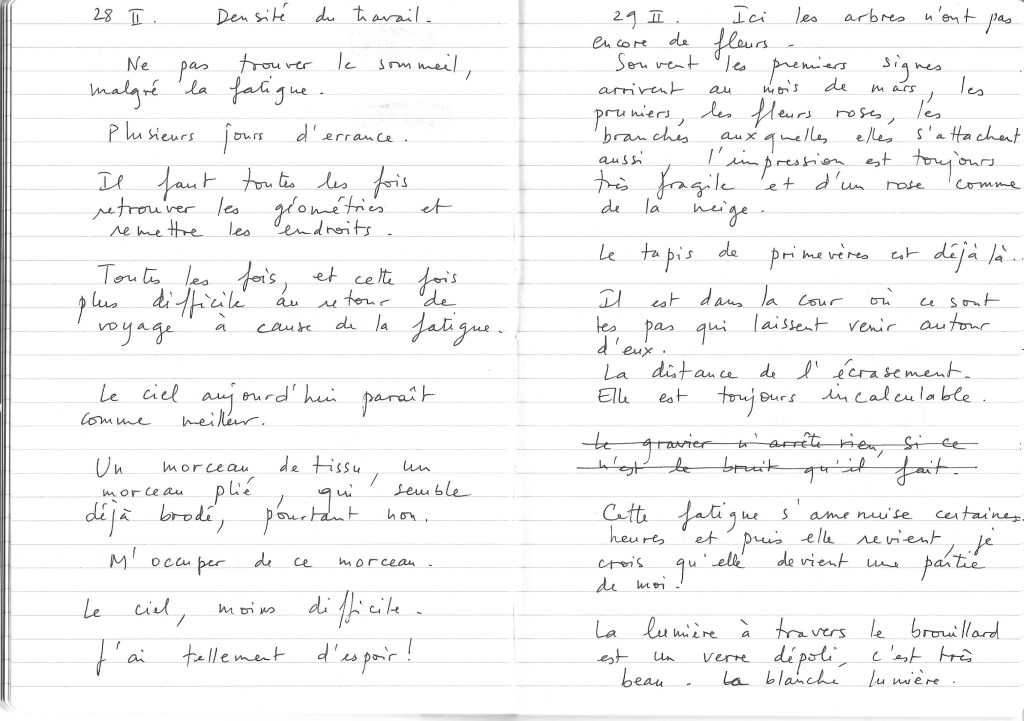 28 II. Densité du travail.
Ne pas trouver le sommeil,
malgré la fatigue.
Plusieurs jours d'errance.
Il faut toutes les fois
retrouver les géométries et
remettre les endroits.
Toutes les fois, et cette fois
plus difficile au retour de
voyage à cause de la fatigue.
Le ciel aujourd'hui paraît
comme meilleur.
Un morceau de tissu, un
morceau plié, qui semble
déjà brodé, pourtant non.
M'occuper de ce morceau.
Le ciel, moins difficile.
J'ai tellement d'espoir!
29 II. Ici les arbres n'ont pas
encore de fleurs.
Souvent les premiers signes
arrivent au mois de mars, les
pruniers, les fleurs roses, les
branches auxquelles elles s'attachent
aussi, l'impression est toujours
très fragile et d'un rose comme
de la neige.
Le tapis de primevères est déjà là.
Il est dans la cour où ce sont
les pas qui laissent venir autour
d'eux.
La distance de l'écrasement.
Elle est toujours incalculable.
Le gravier n'arrête rien, si ce
n'est le bruit qu'il fait.
Cette fatigue s'amenuise certaines
heures et puis elle revient, je
crois qu'elle devient une partie
de moi.
La lumière à travers le brouillard
est un verre dépoli, c'est très
beau. La blanche lumière.